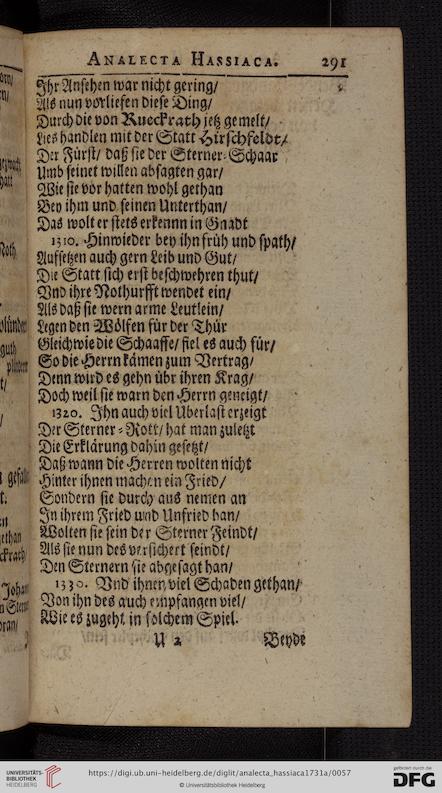 Analecta Hassiaca. 291
Ihr Ansehen war nicht gering/
Als nun vorliefen diese Ding/
Durch die von Rueckrath jetz gemelt/
Lies handlen mit der Statt Hirschfeldt/
Der Fürst/ daß sie der Sterner-Schaar
Umb seinet willen absagten gar/
Wie sie vor hatten wohl gethan
Bey ihm und seinen Unterthan/
Das wolt er stets erkennn in Gnadt
1310. Hinwieder bey ihn früh und spath/
Auffsetzen auch gern Leib und Gut/
Die Statt sich erst beschwehren thut/
Vnd ihre Nothurfft wendet ein/
Als daß sie wern arme Leutlein/
Legen den Wölfen für der Thür
Gleich wie die Schaaffe/ fiel es auch für/
So die Herrn kämen zum Vertrag/
Denn wird es gehn übr ihren Krag/
Doch weil sie warn den Herrn geneigt/
1320. Ihn auch viel Uberlast erzeigt
Der Sterner-Rott/ hat man zuletzt
Die Erklärung dahin gesetzt/
Daß wann die Herren wolten nicht
Hinter ihnen machen ein Fried/
Sondern sie durch aus nemen an
In ihrem Fried und Unfried han/
Wolten sie sein der Sterner Feindt/
Als sie nun des versichert seindt/
Den Sternern sie abgesagt han/
1330. Vnd ihnen viel Schaden gethan/
Von ihn des auch empfangen viel/
Wie es zugeht in solchem Spiel.
U 2 Beyde
UNIVERSITÄTS-
BIBLIOTHEK
HEIDELBERG
https://digi.ub.uni-heidelberg.de/diglit/analecta_hassiaca1731a/0057
© Universitätsbibliothek Heidelberg
gefördert durch die
DFG